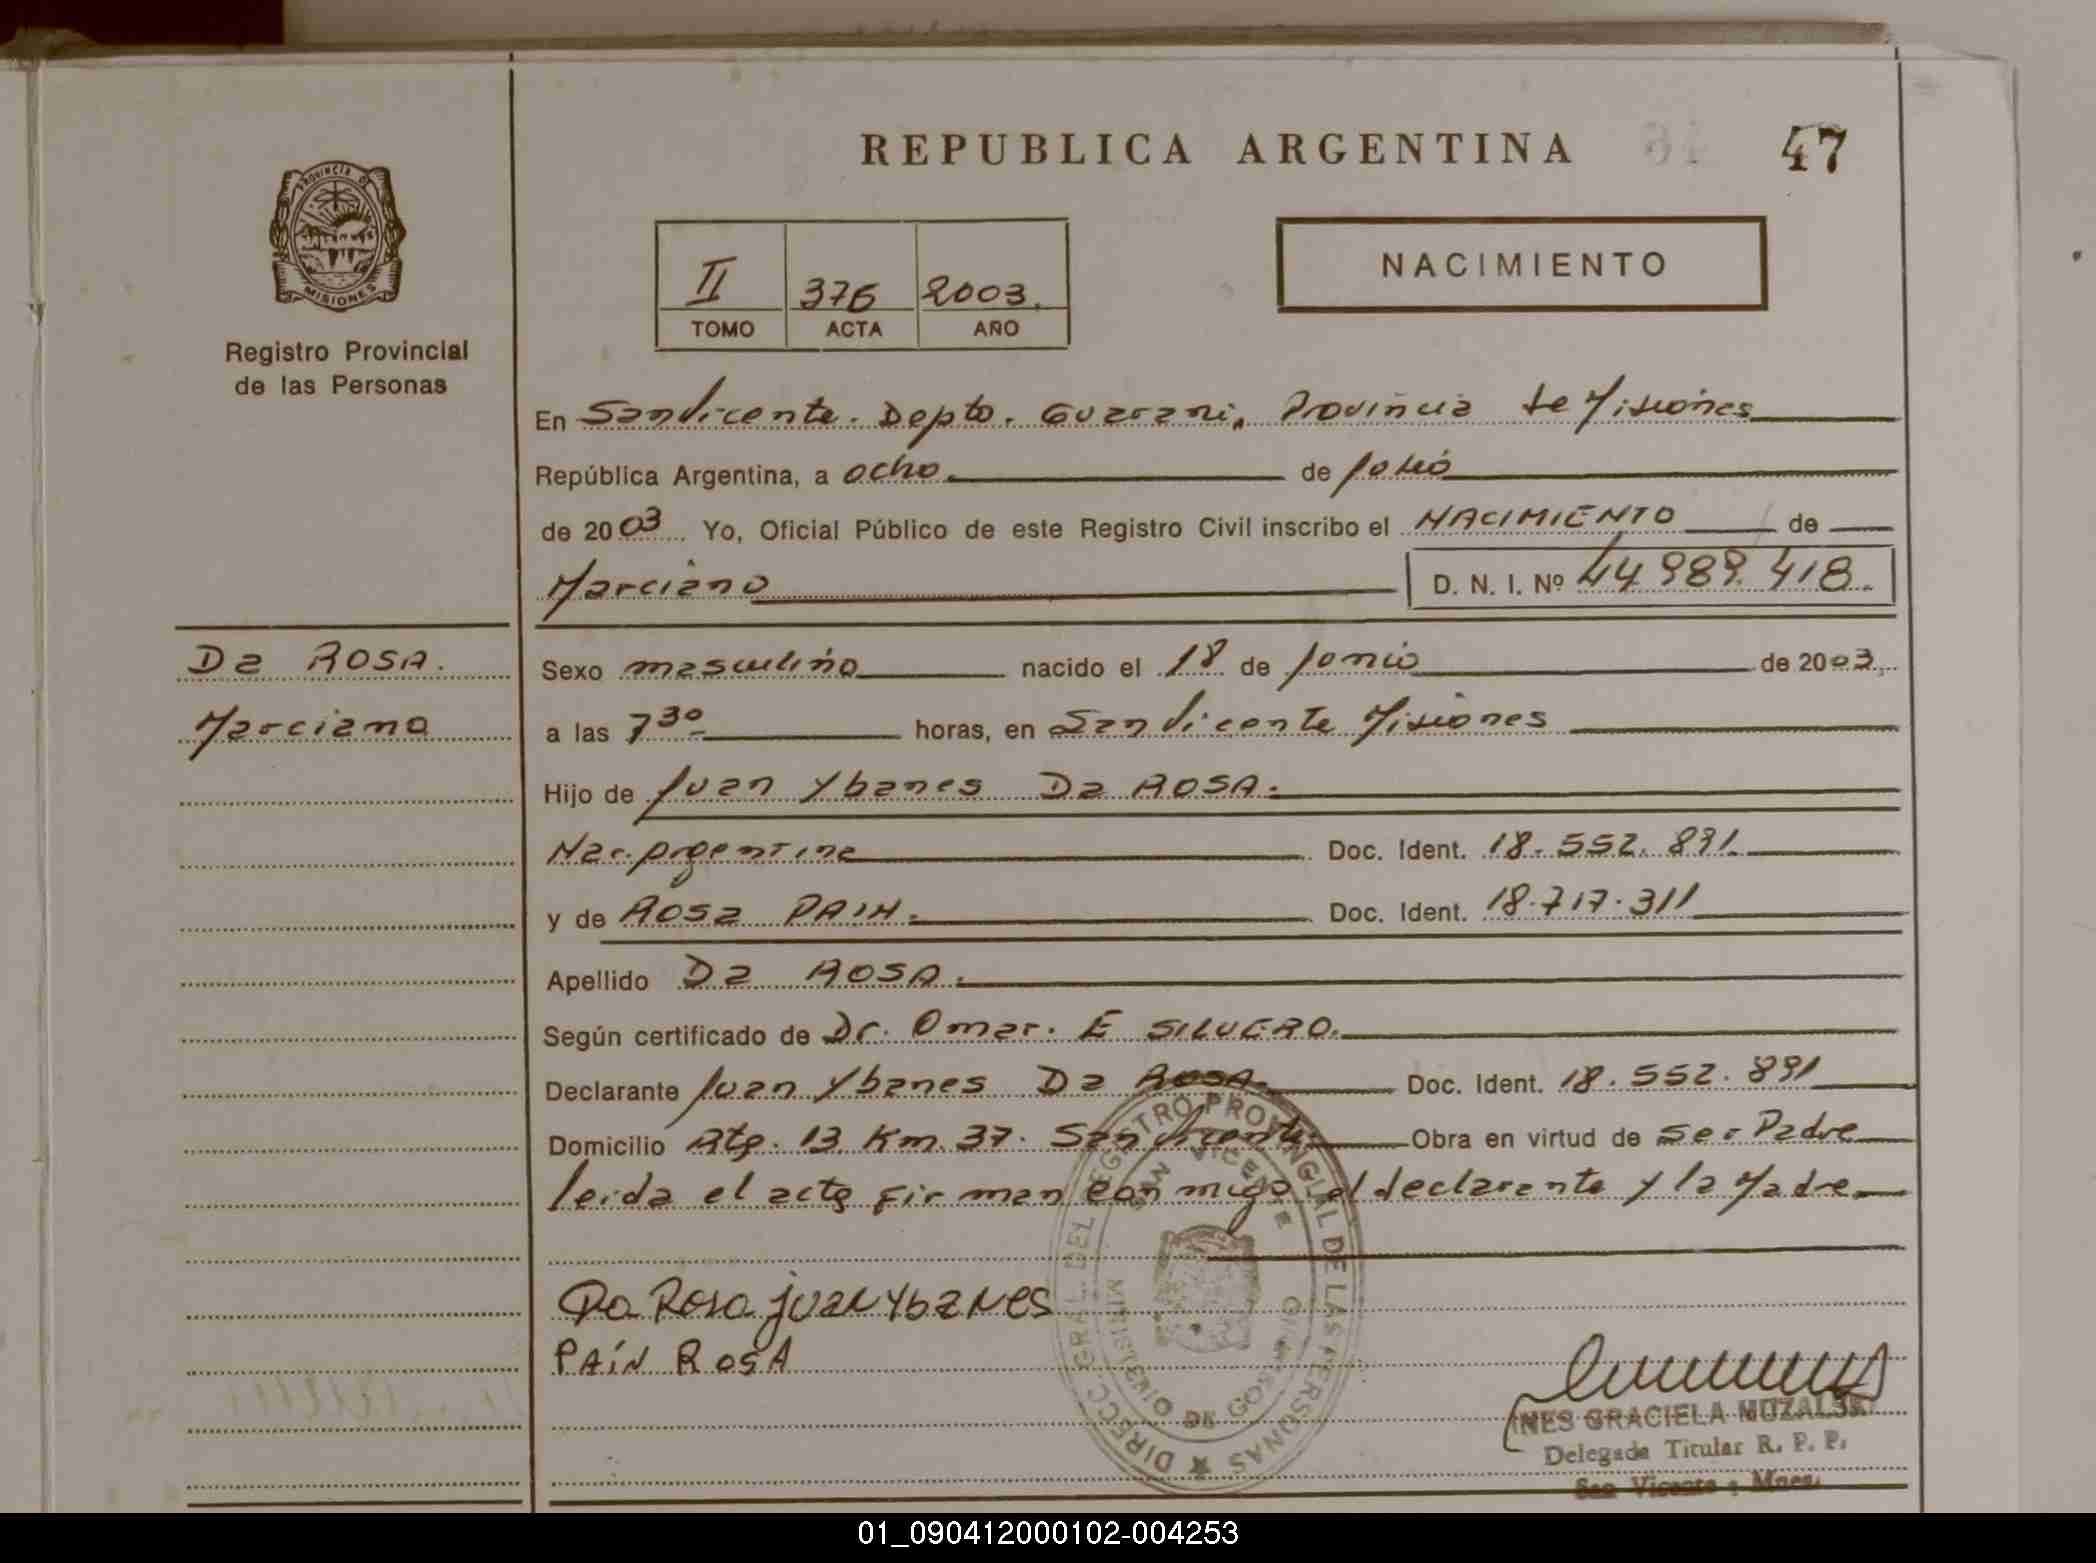 REPUBLICA ARGENTINA
47
PROVINCIA DE
MISIONES
Registro Provincial
de las Personas
II 376 2003.
TOMO ACTA AÑO
NACIMIENTO
En San Vicente. Depto. Guarani, Provincia de Misiones
República Argentina, a ocho de Julio
de 2003 Yo, Oficial Público de este Registro Civil inscribo el NACIMIENTO de
Marciano D. N. I. Nº 44.989.418.
Da ROSA.
Marciano
Sexo masculino nacido el 18 de Junio de 2003.
a las 7 30 horas, en San Vicente Misiones
Hijo de Juan Ybanes Da ROSA.
Nac. Argentina Doc. Ident. 18.552.891
y de Rosa PAIN. Doc. Ident. 18.717.311
Apellido Da ROSA.
Según certificado de Dr. Omar. E SILVERO.
Declarante Juan Ybanes Da ROSA. Doc. Ident. 18.552.891
Domicilio Rta. 13 Km. 37. San Vicente Obra en virtud de ser Padre
leida el acta firman conmigo el declarante y la Madre
Da Rosa juan Ybanes
PAíN ROSA
DIRECC. GRAL. DEL REGISTRO PROVINCIAL DE LAS PERSONAS
SAN VICENTE
MINISTERIO DE GOBIERNO
INES GRACIELA
Delegada Titular R. P. P.
San Vicente - Mnes.
01_090412000102-004253